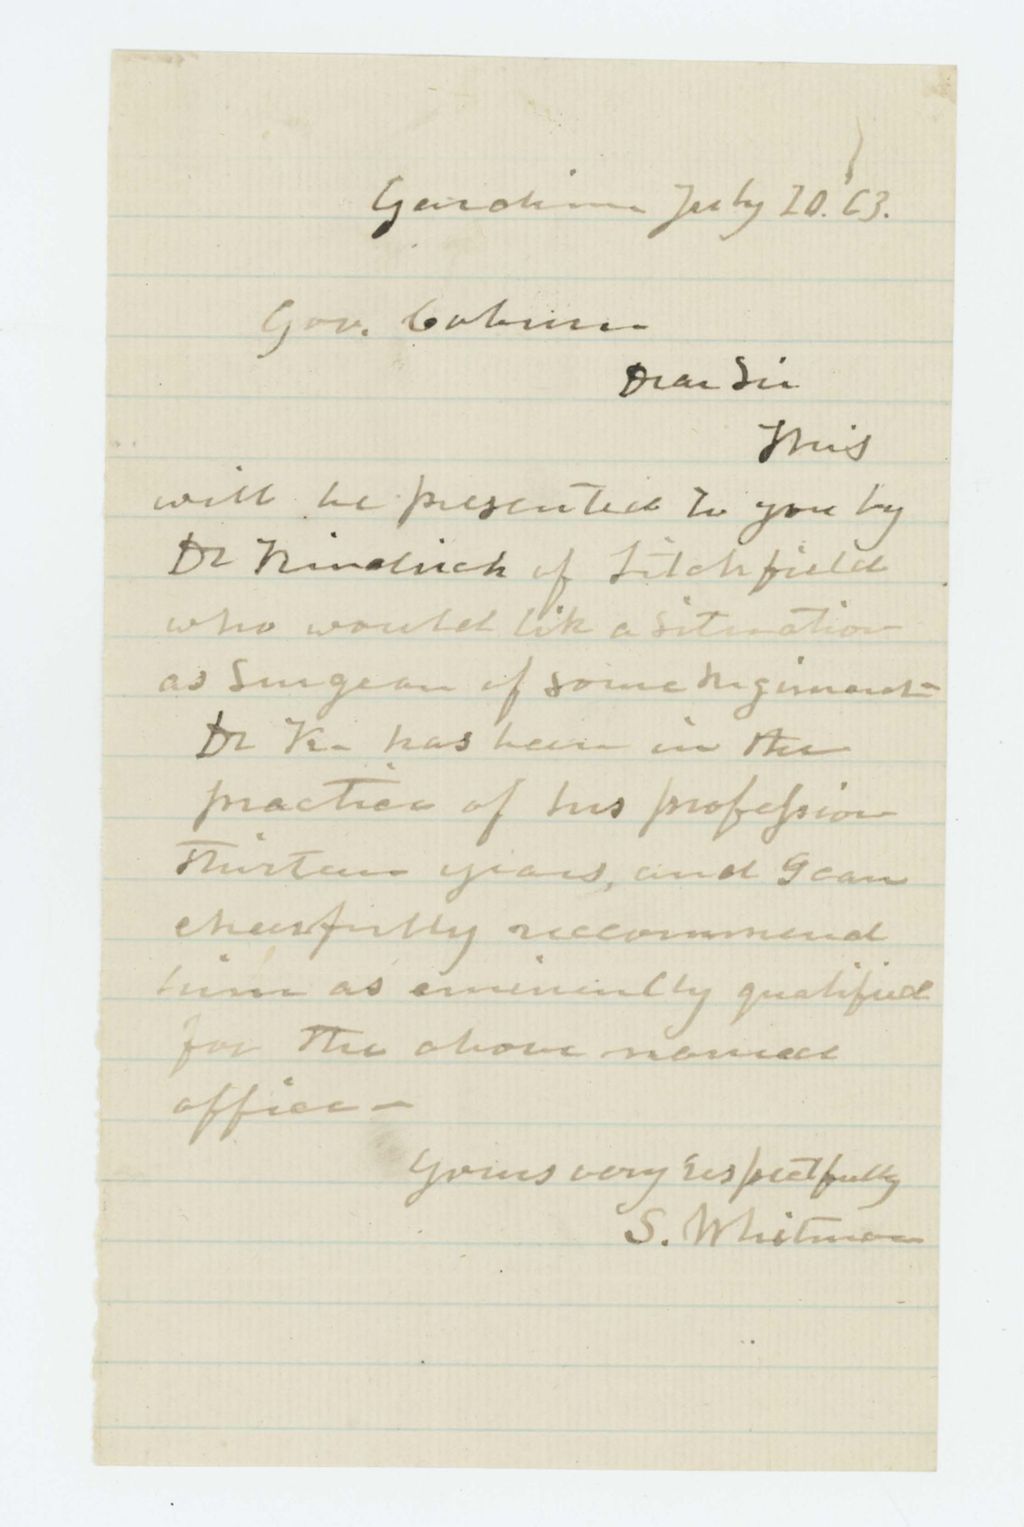 Gardiner July 20. 63.
Gov. Coburn
Dear Sir
This
will be presented to you by
Dr Kindrick of Litchfield
who would lik a situation
as Surgeon of some regiment
Dr K. has been in the
practice of his profession
thirteen years, and I can
cheerfully reccommend
him as eminently qualified
for the above named
office -
Yours very respectfully
S. Whitman